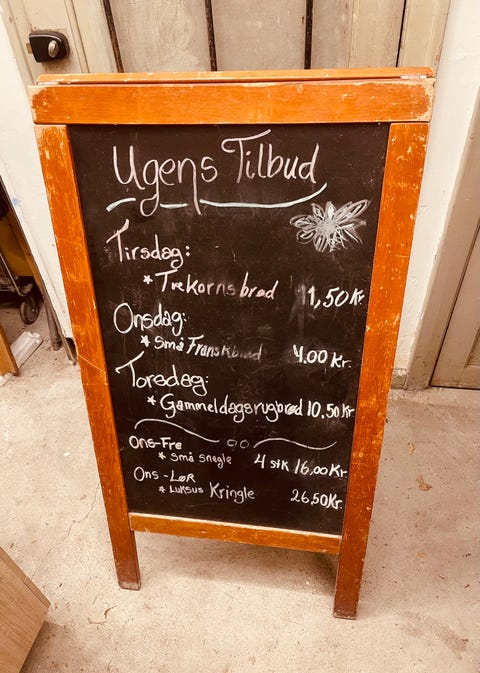 Ugens Tilbud
Tirsdag:
* Trekornsbrød 11,50 Kr
Onsdag:
* Små Franskbrød 4,00 Kr.
Torsdag:
* Gammeldagsrugbrød 10,50 Kr
Ons-Fre
* Små snegle 4 stk 16,00 Kr
Ons-Lør
* Luksus Kringle 26,50 Kr.